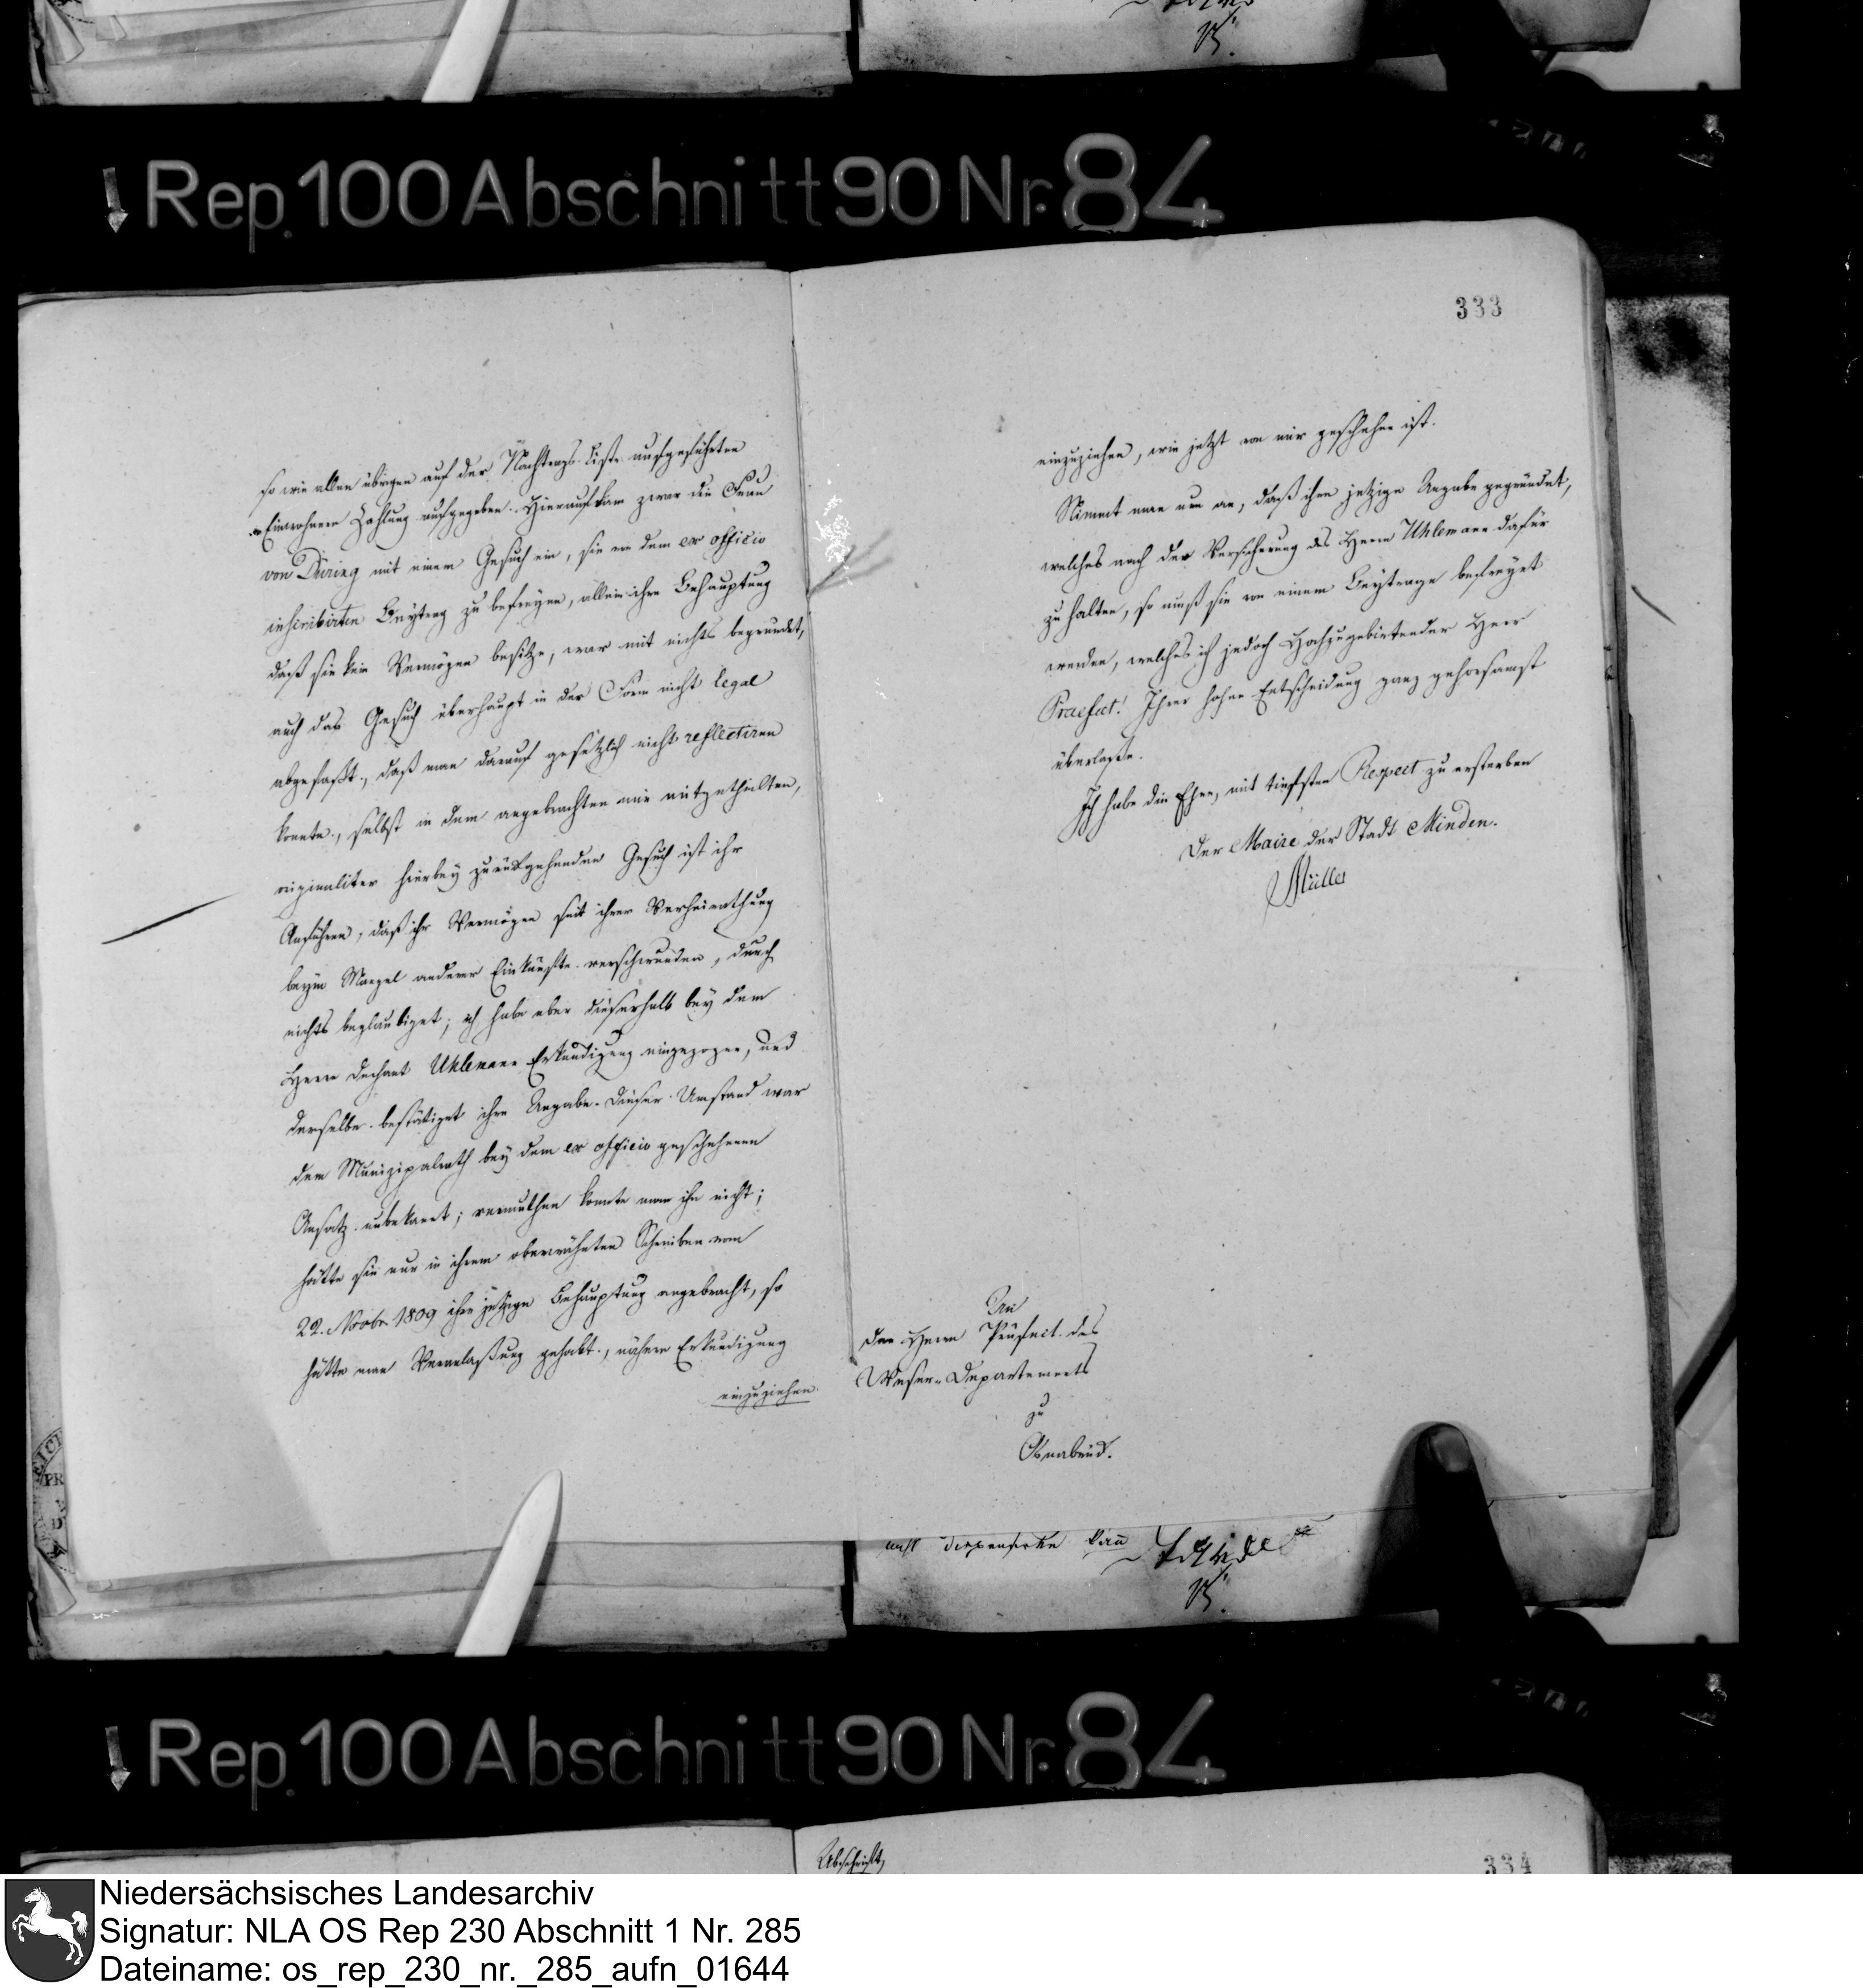 Rep. 100 Abschnitt 90 Nr. 84
333
so wie allen übrigen auf der Nachtrags-Liste aufgeführten
Einwohnern Zahlung aufgegeben. Hierauf kam zwar die Frau
von Düring mit einem Gesuch ein, sie von dem ex officio
inscribirten Beytrag zu befreyen, allein ihre Behauptung
daß sie kein Vermögen besitze, war mit nichts begründet,
auch das Gesuch überhaupt in der Form nicht legal
abgefaßt, daß man darauf gesetzlich nicht reflectiren
konnte, selbst in dem angebrachten mir mitgetheilten,
originaliter hierbey zurückgehenden Gesuch ist ihr
Anführen, daß ihr Vermögen seit ihrer Verheirathung
beym Mangel anderer Einkünfte verschwunden, durch
nichts beglaubiget; ich habe aber dieserhalb bey dem
Herrn Dechant Uhlemann Erkundigung eingezogen, und
derselbe bestätiget ihre Angabe. Dieser Umstand war
dem Munizipalrath bey dem ex officio geschehenen
Ansatz unbekannt; vermuthen konnte man ihn nicht;
hätte sie nur in ihrem oberwähnten Schreiben vom
22. Novbr. 1809 ihre jetzige Behauptung angebracht, so
hätte man Veranlaßung gehabt, nähere Erkundigung
einzuziehen
einzuziehen, wie jetzt von mir geschehen ist.
Nimmt man nun an, daß ihre jetzige Angabe gegründet,
welches nach der Versicherung des Herrn Uhlemann dafür
zu halten, so muß sie von einem Beytrage befreyet
werden, welches ich jedoch Hochzugebietender Herr
Praefect! Ihrer hohen Entscheidung ganz gehorsamst
überlaße.
Ich habe die Ehre, mit tiefsten Respect zu ersterben
Der Maire der Stadt Minden.
Müller
An
den Herrn Präfect des
Weser-Departements
zu
Osnabrück.
nicht dispensiren kann
Rep. 100 Abschnitt 90 Nr. 84
Abschrift
334
Niedersächsisches Landesarchiv
Signatur: NLA OS Rep 230 Abschnitt 1 Nr. 285
Dateiname: os_rep_230_nr._285_aufn_01644